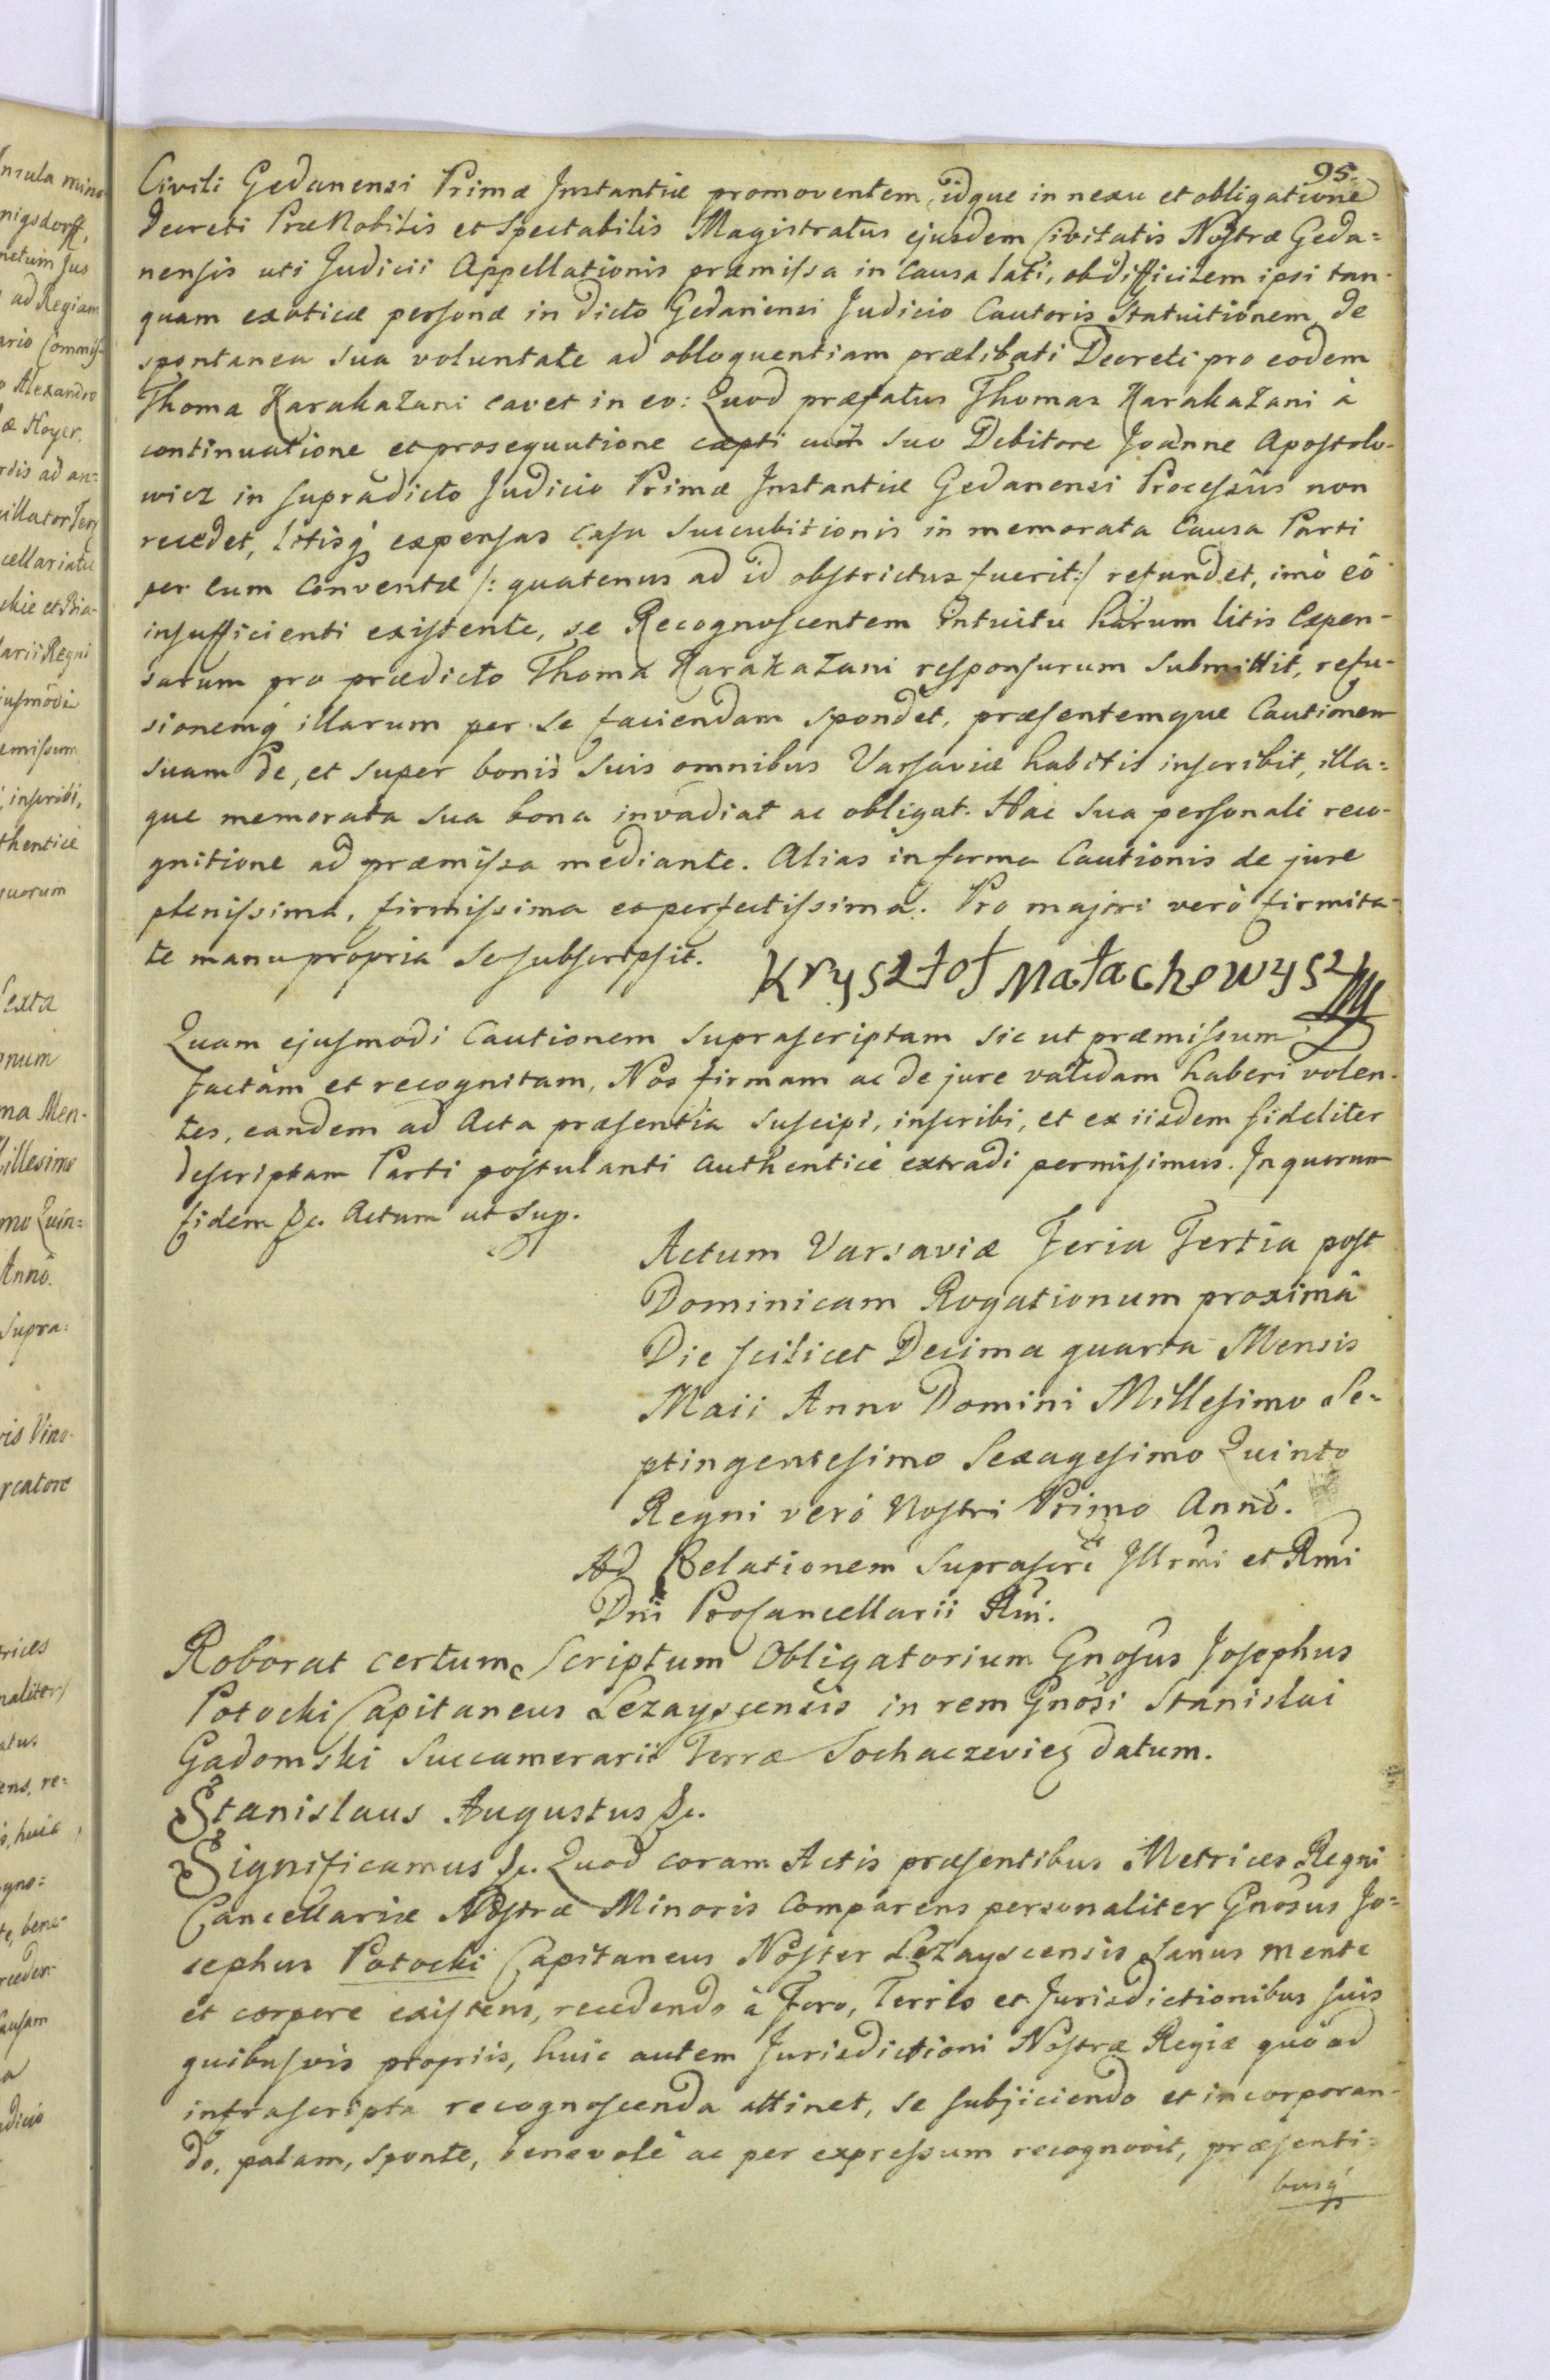 95.
Civili Gedanensi Primæ Instantiæ promoventem, idque in nexu et obligatione
Decreti PræNobilis et Spectabilis Magistratûs ejusdem Civitatis Nostræ Geda=
nensis uti Judicii Appellationis præmissa in Causa lati, ob difficilem ipsi tan-
quam exoticæ personæ in dicto Gedanensi Judicio Cautoris Statuitionem, de
spontanea sua voluntate ad obloquentiam prælibati Decreti pro eodem
Thoma Karakazani cavet in eo: Quod præfatus Thomas Karakazani à
continuatione et prosequutione cæpti cum suo Debitore Joanne Apostolo-
wicz in supradicto Judicio Primæ Instantiæ Gedanensi Processûs non
recedet, litisq́ expensas casu succubitionis in memorata Causa Parti
per eum Conventæ /: quatenus ad id obstrictus fuerit :/ refundet, imò eô
insufficienti existente, se Recognoscentem intuitu harum litis Expen-
sarum pro prædicto Thoma Karakazani responsurum submittit, refu-
sionemq́ illarum per se faciendam spondet, præsentemque Cautionem
suam de, et super bonis suis omnibus Varsaviæ habitis inscribit, illa=
que memorata sua bona invadiat ac obligat. Hac sua personali reco-
gnitione ad præmissa mediante. Alias in forma Cautionis de jure
plenissima, firmissima et perfectissima. Pro majori verò firmita-
te manu propria se subscripsit. Krysztof Małachowysz
Quam ejusmodi Cautionem suprascriptam sic ut præmissum
factam et recognitam, Nos firmam ac de jure validam haberi volen-
tes, eandem ad Acta præsentia suscipi, inscribi, et ex iisdem fideliter
descriptam Parti postulanti authenticè extradi permisimus. In quorum
fidem &c. Actum ut sup.
Actum Varsaviæ Feria Tertia post
Dominicam Rogationum proximâ
Die scilicet Decima quarta Mensis
Maii Anno Domini Millesimo Se=
ptingentesimo Sexagesimo Quinto
Regni verò Nostri Primo Annô.
Ad Relationem suprascri Illrmi et Rmi
Dni ProCancellarii Rni.
Roborat certum Scriptum Obligatorium Gnosus Josephus
Potocki Capitaneus Lezayscensis in rem Gnosi Stanislai
Gadomski Succamerarii Terræ Sochaczevieñ datum.
Stanislaus Augustus &c.
Significamus &c. Quod coram Actis præsentibus Metrices Regni
Cancellariæ Nostræ Minoris Comparens personaliter Gnosus Jo=
sephus Potocki Capitaneus Noster Lezayscensis sanus mente
et corpore existens, recedendo à Foro, Terris et Jurisdictionibus suis
quibusvis propriis, huic autem Jurisdictioni Nostræ Regiæ quò ad
infrascripta recognoscenda attinet, se subjiciendo et incorporan-
do, palam, sponte, benevolè ac per expressum recognovit, præsenti=
busq́